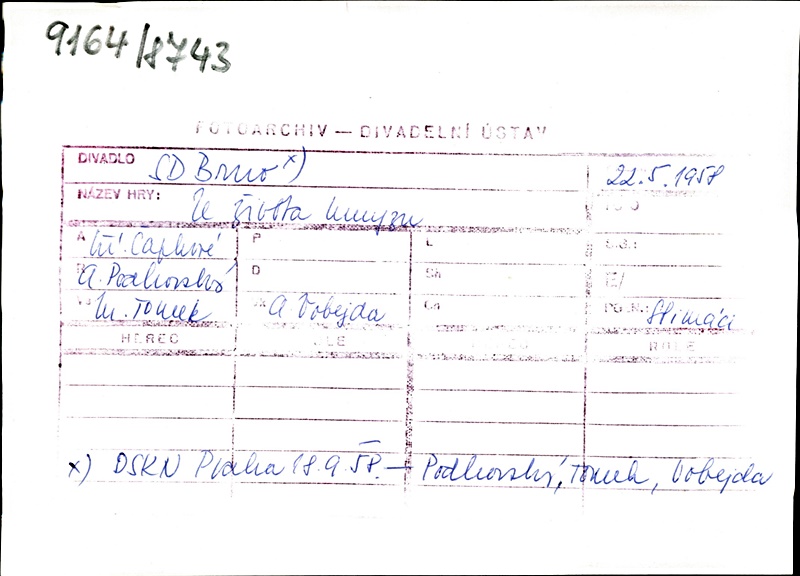 9164/8743
FOTOARCHIV — DIVADELNÍ ÚSTAV
DIVADLO SD Brno x) 22.5.1958
NÁZEV HRY: Ze života hmyzu
A bří. Čapkové P L
A. Podhorský D Sh E/
M. Tomek A Vobejda POZN.: Slimáci
HEREC ROLE
x) DSKN Praha 18.9.58. — Podhorský, Tomek, Vobejda